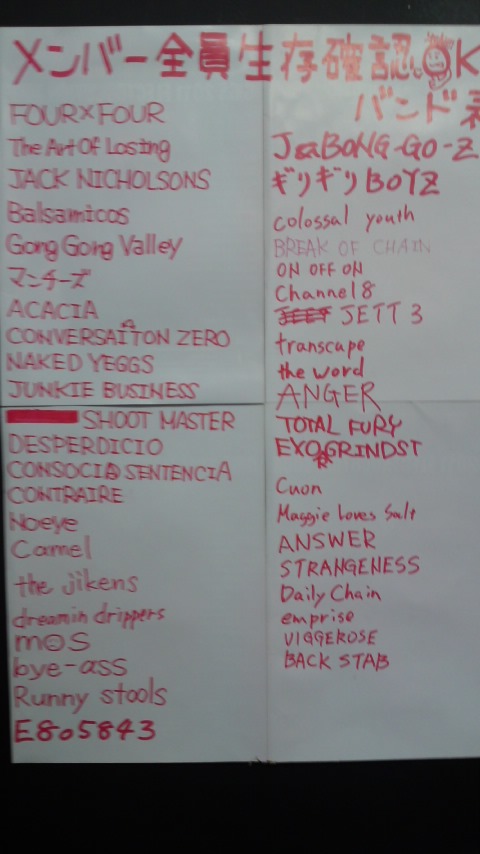 メンバー全員生存確認。OK
バンド表
FOUR×FOUR
The Art Of Losing
JACK NICHOLSONS
Balsamicos
Gong Gong Valley
マンチーズ
ACACIA
CONVERSAITON ZERO
NAKED YEGGS
JUNKIE BUSINESS
SHOOT MASTER
DESPERDICIO
CONSOCIA SENTENCIA
CONTRAIRE
Noeye
Camel
the jikens
dreamin drippers
mOS
bye-ass
Runny stools
E805843
JaBONG-GO-Z
ギリギリBOYZ
colossal youth
BREAK OF CHAIN
ON OFF ON
Channel 8
JETT 3
transcape
the word
ANGER
TOTAL FURY
EXOGRINDST
Cuon
Maggie Loves Salt
ANSWER
STRANGENESS
Daily Chain
emprise
VIGGEROSE
BACK STAB